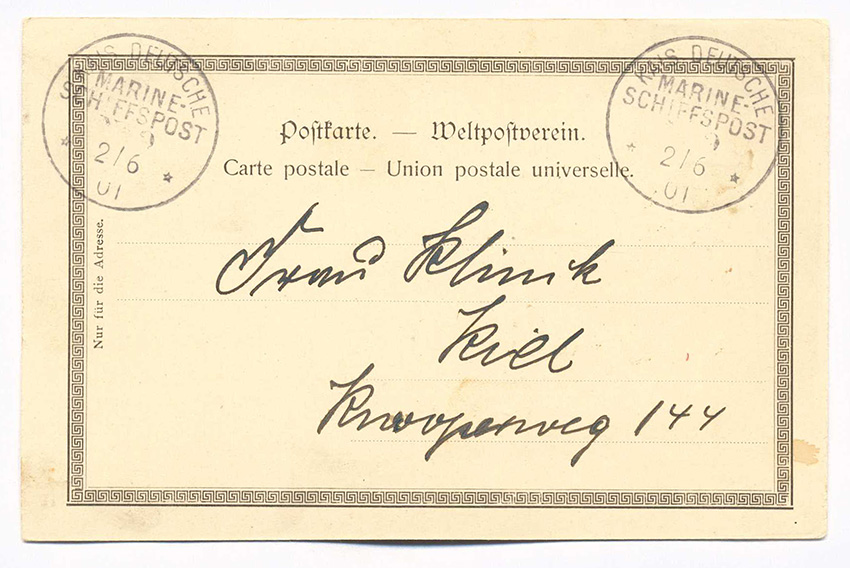 KAIS. DEUTSCHE
MARINE-
SCHIFFSPOST
2/6
01
KAIS. DEUTSCHE
MARINE-
SCHIFFSPOST
2/6
01
Postkarte. — Weltpostverein.
Carte postale — Union postale universelle.
Nur für die Adresse.
Frau Klinik
Kiel
Knooperweg 144